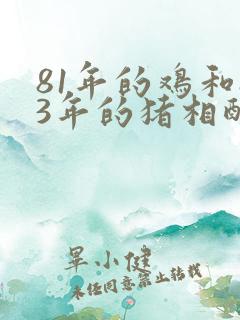 81年的鸡和
3年的猪相配
昙小健
未经同意禁止转载